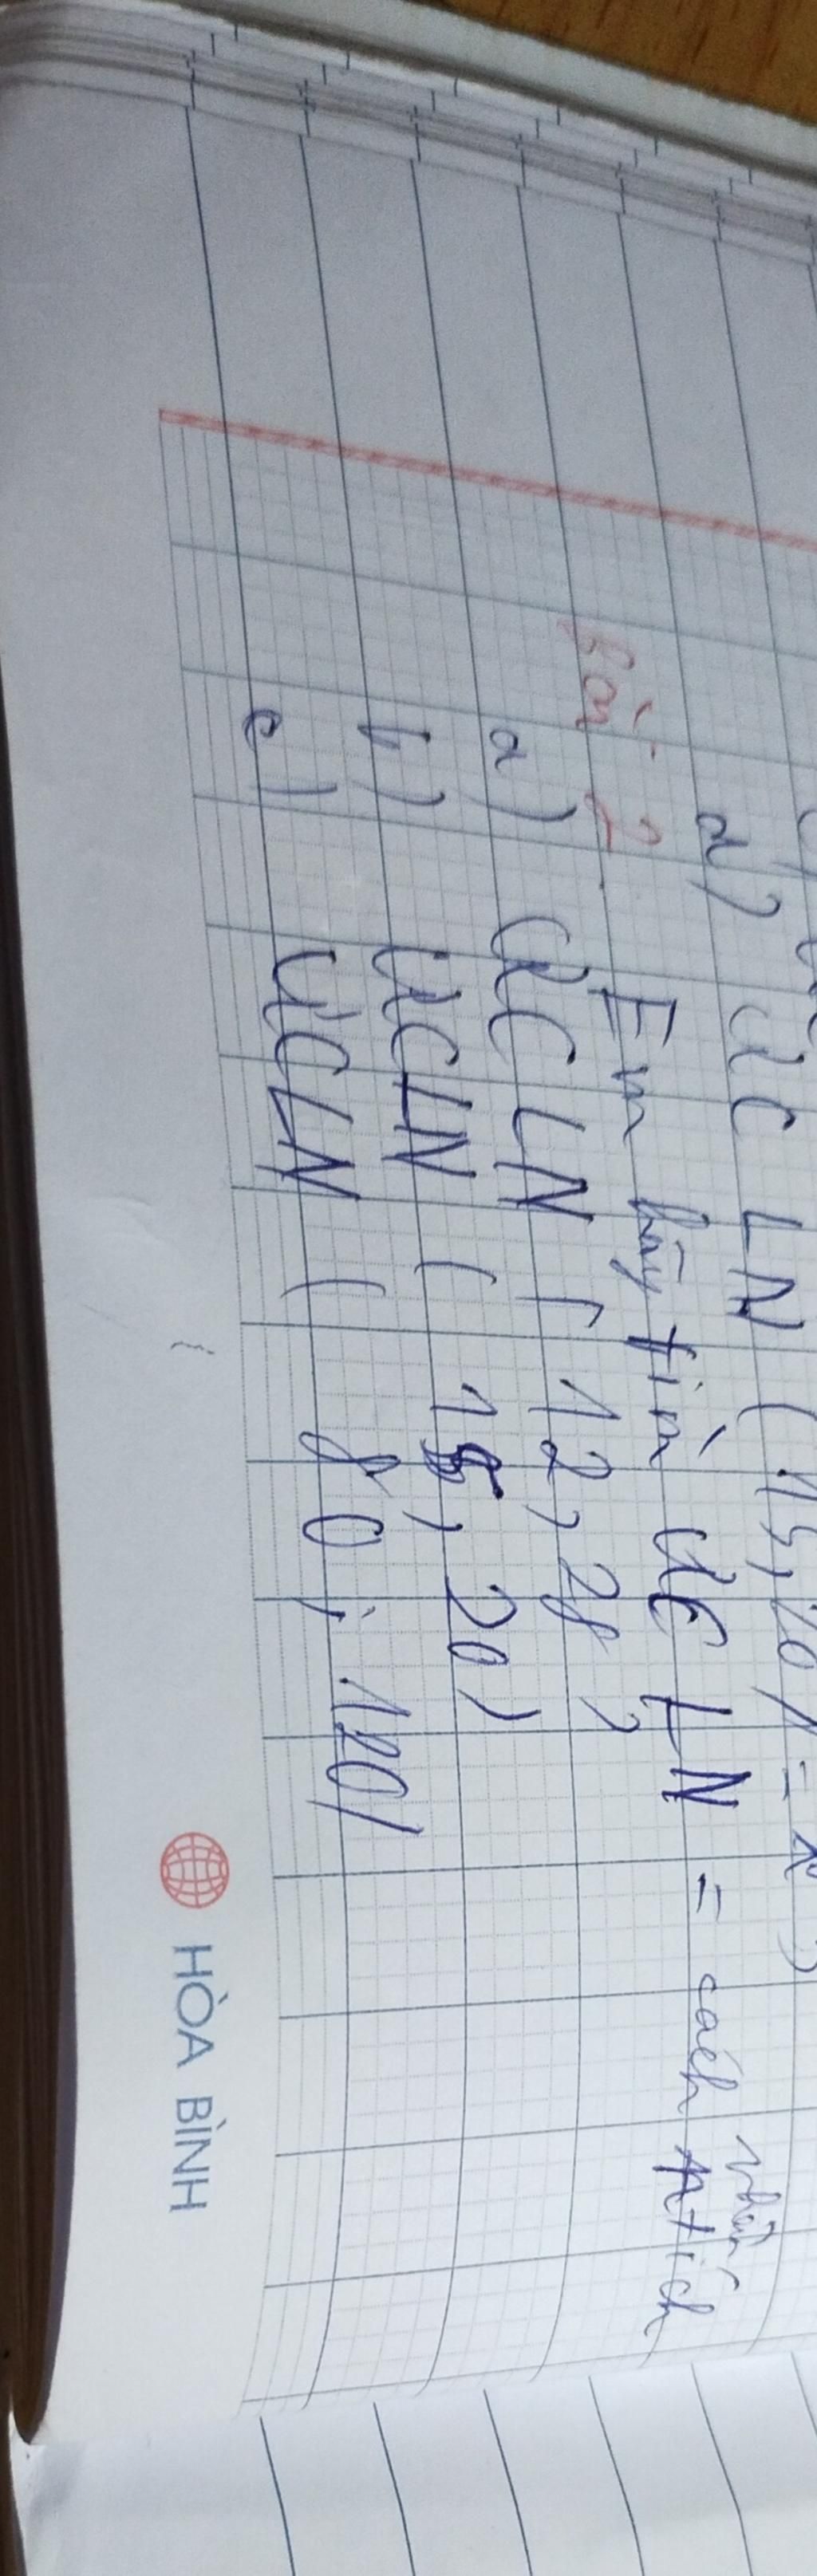 d) ƯCLN (15, 20) =
Bài 2. Em hãy tìm ƯCLN = cách phân tích
a) ƯCLN (12, 28)
b) ƯCLN ( 15, 20)
c) ƯCLN ( 80; 120)
HÒA BÌNH